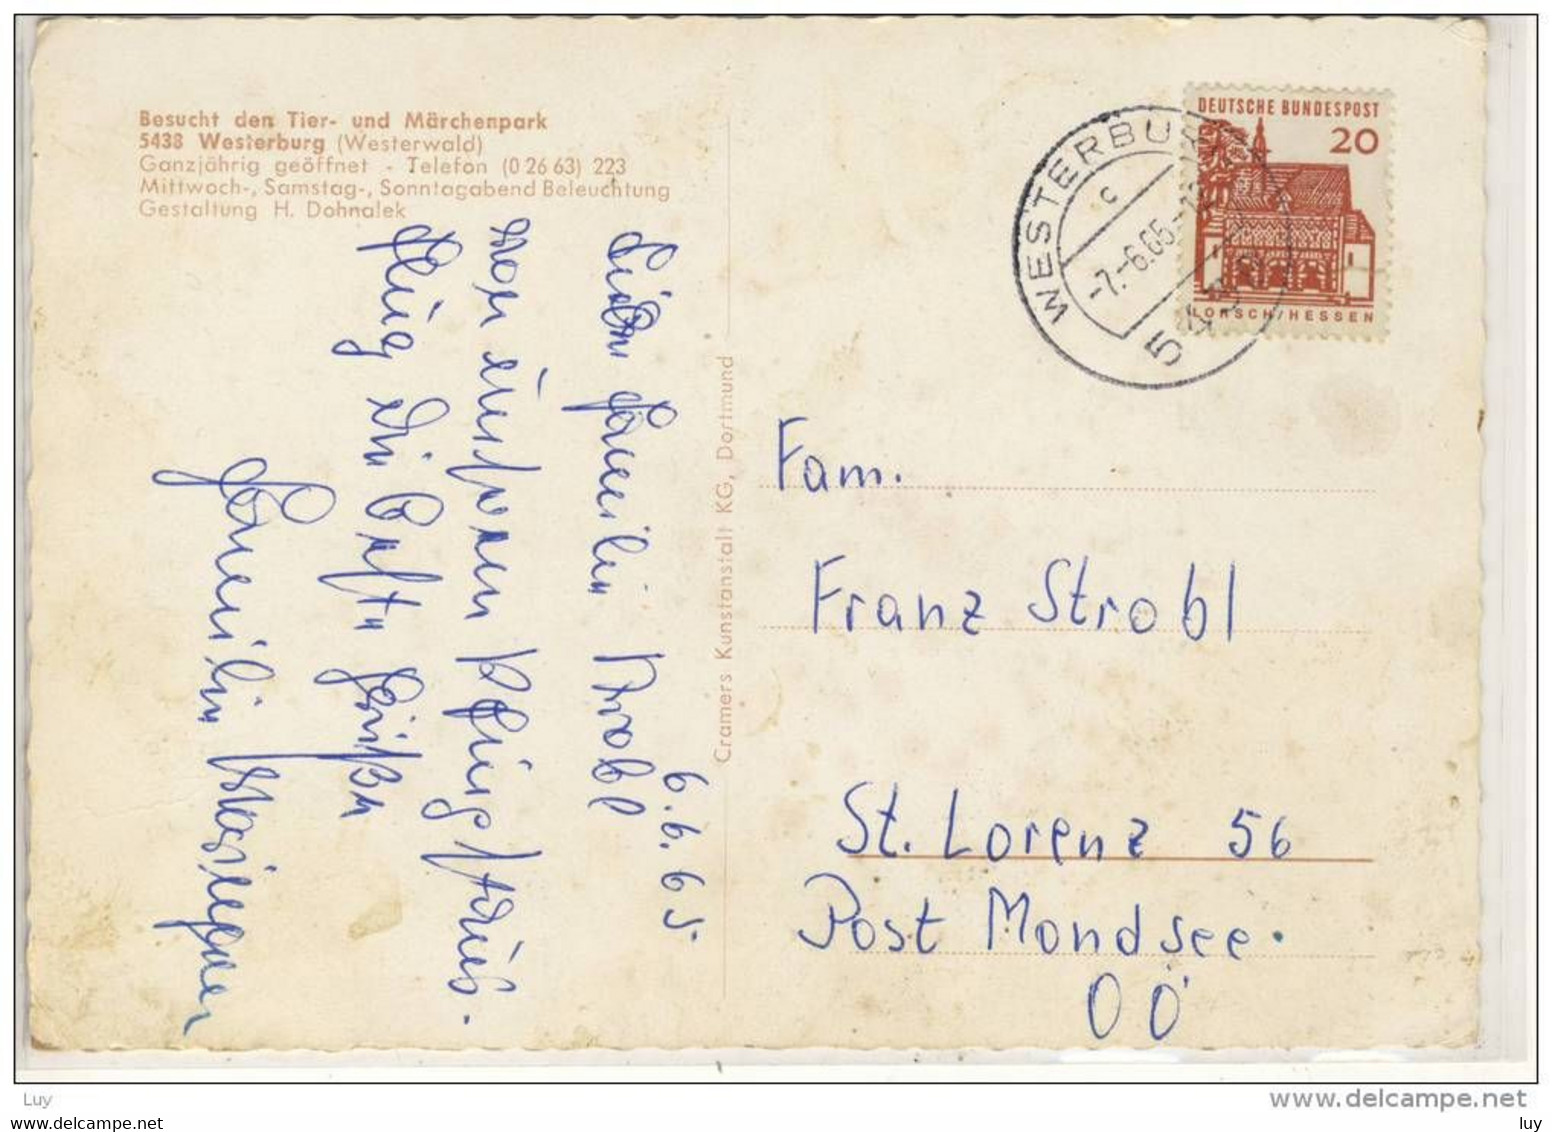 Besucht den Tier- und Märchenpark
5438 Westerburg (Westerwald)
Ganzjährig geöffnet - Telefon (0 26 63) 223
Mittwoch-, Samstag-, Sonntagabend Beleuchtung
Gestaltung H. Dohnalek
6.6.65.
Liebe Familie Strobl
von unserem Pfingst
Flug die besten Grüße
Familie
Cramers Kunstanstalt KG, Dortmund
DEUTSCHE BUNDESPOST
20
LORSCH/HESSEN
WESTERBURG
c
-7.-6.65-
5
Fam.
Franz Strobl
St. Lorenz 56
Post Mondsee.
OÖ
Luy
www.delcampe.net
luy